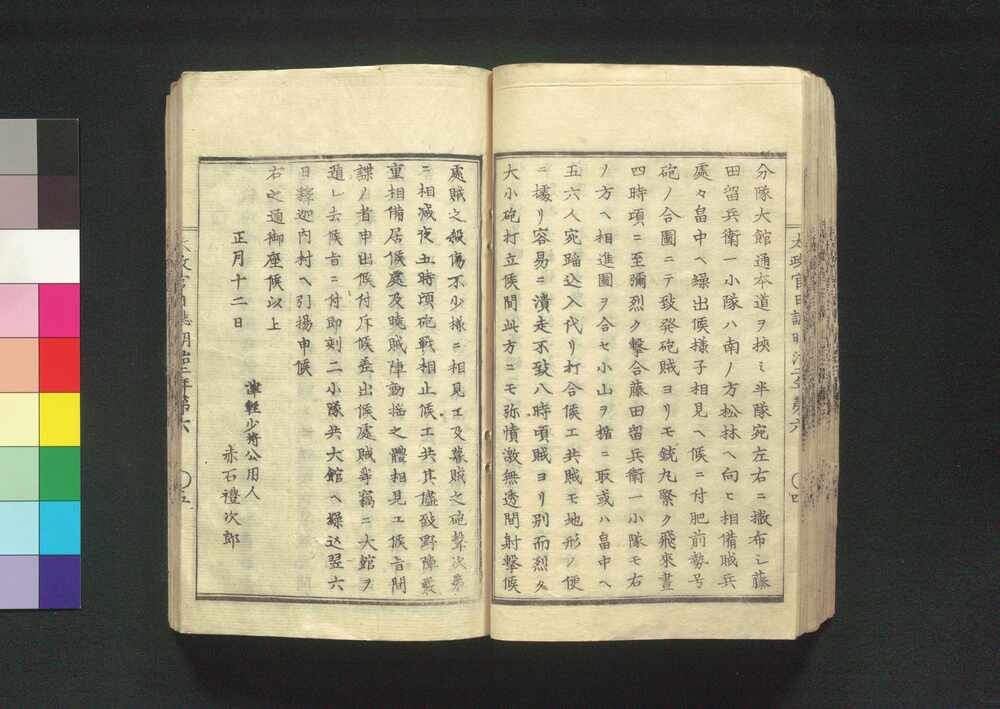 分隊大館通本道ヲ挾ミ半隊宛左右ニ撒布シ藤
田留兵衛一小隊ハ南ノ方松林ヘ向ヒ相備賊兵
處々畠中ヘ繰出候様子相見ヘ候ニ付肥前勢号
砲ノ合圖ニテ致発砲賊ヨリモ銃丸緊ク飛來晝
四時頃ニ至彌烈ク撃合藤田留兵衛一小隊モ右
ノ方ヘ相進圖ヲ合セ小山ヲ楯ニ取或ハ畠中ヘ
五六人宛踰込入代リ打合候エ共賊モ地形ノ便
ニ據リ容易ニ潰走不致八時頃賊ヨリ別而烈ク
大小砲打立候間此方ニモ弥憤激無透間射撃候
處賊之殺傷不少様ニ相見エ及暮賊之砲聲次第
ニ相減夜五時頃砲戦相止候エ共其儘致野陣嚴
重相備居候處及曉賊陣動揺之體相見エ候旨間
諜ノ者申出候付斥候差出候處賊等竊ニ大館ヲ
遁レ去候旨ニ付即刻二小隊共大館ヘ操込翌六
日釋迦内村ヘ引揚申候
右之通御座候以上
正月十二日
津軽少将公用人
赤石禮次郎
太政官日誌明治二年第六
〇五
太政官日誌明治二年第六
〇四